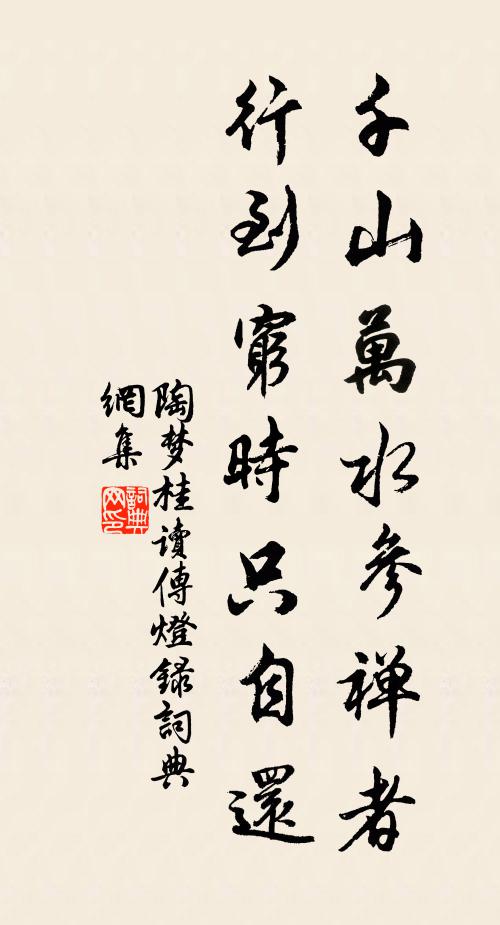 千山萬水參禅者
行到窮時只自還
陶梦桂讀傳燈錄詞典
網集
詞典
网印